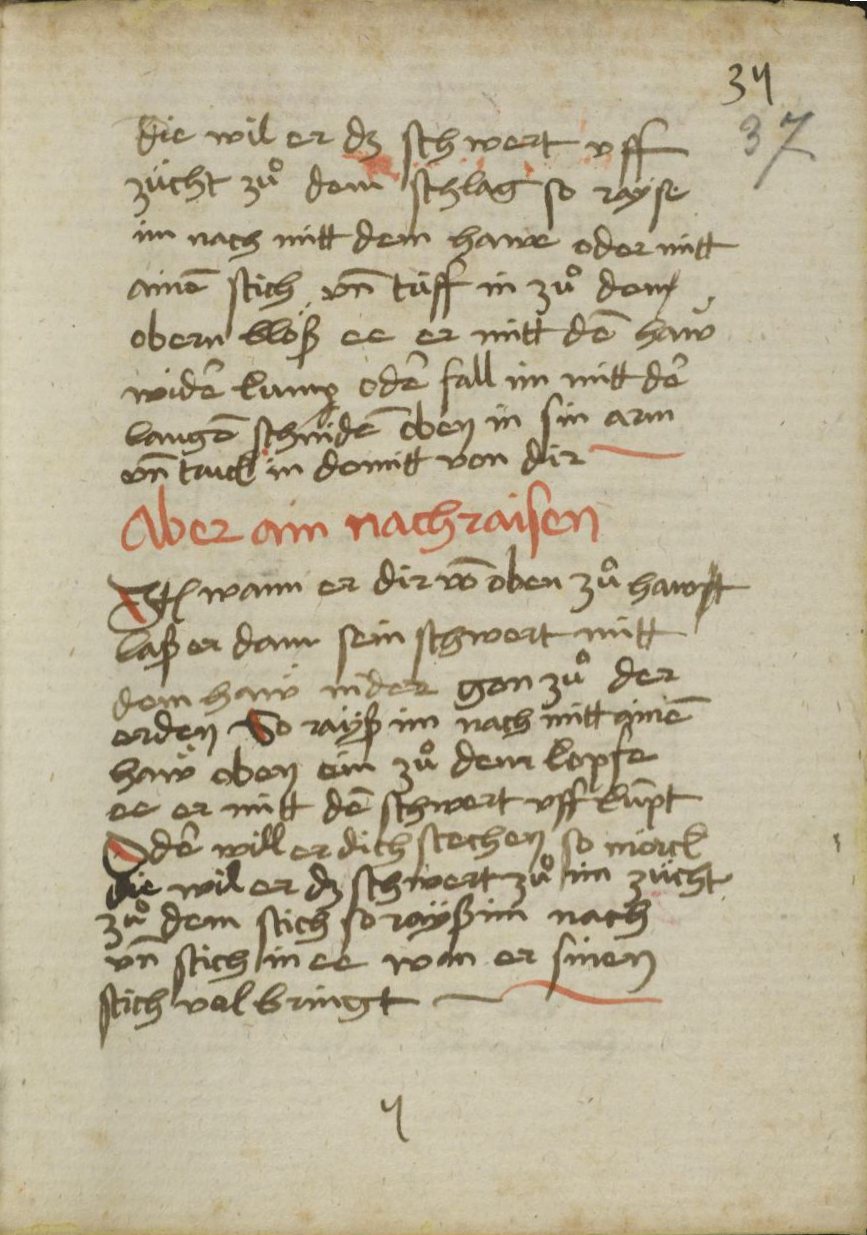 34
37
die wil er dz schwert vff
zücht zuͦ dem schlag so rayse
im nach mitt dem hawe oder mitt
ainē stich vn̄ tüff in zuͦ dem
obern blöß ee er mitt dē haẅ
widē kump odē fall im mitt dē
langē schnidē oben in sin arm
vn̄ truck in domitt von dir
Aber ain nachraisen
Itē wann er dir vō oben zuͦ hawt
laß er dann sein schwert mitt
dem haẅ nider gen zuͦ der
erden So raÿß im nach mitt ainē
haẅ oben ein zuͦ dem kopfe
ee er mitt dē schwert vff kūpt
Odē will er dich stechen so mörck
die wil er dz schwert zuͦ im zücht
zuͦ dem stich so raÿß im nach
vn̄ stich in ee wan er sinen
stich vol bringt